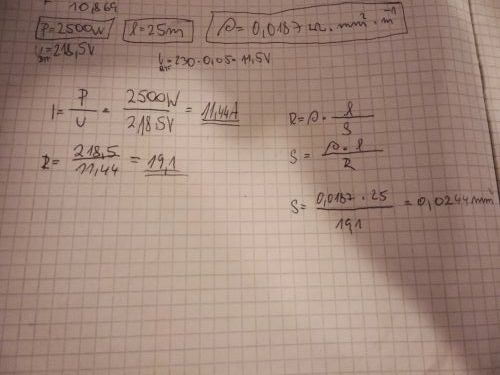 10,869
P=2500W l=25m ρ=0,0187 Ω·mm²·m⁻¹
U=218,5V U=230·0,05=11,5V
I=P/U = 2500W/218,5V = 11,44A
R=218,5/11,44 = 19,1
R=ρ·l/S
S=ρ·l/R
S=0,0187·25/19,1=0,0244mm